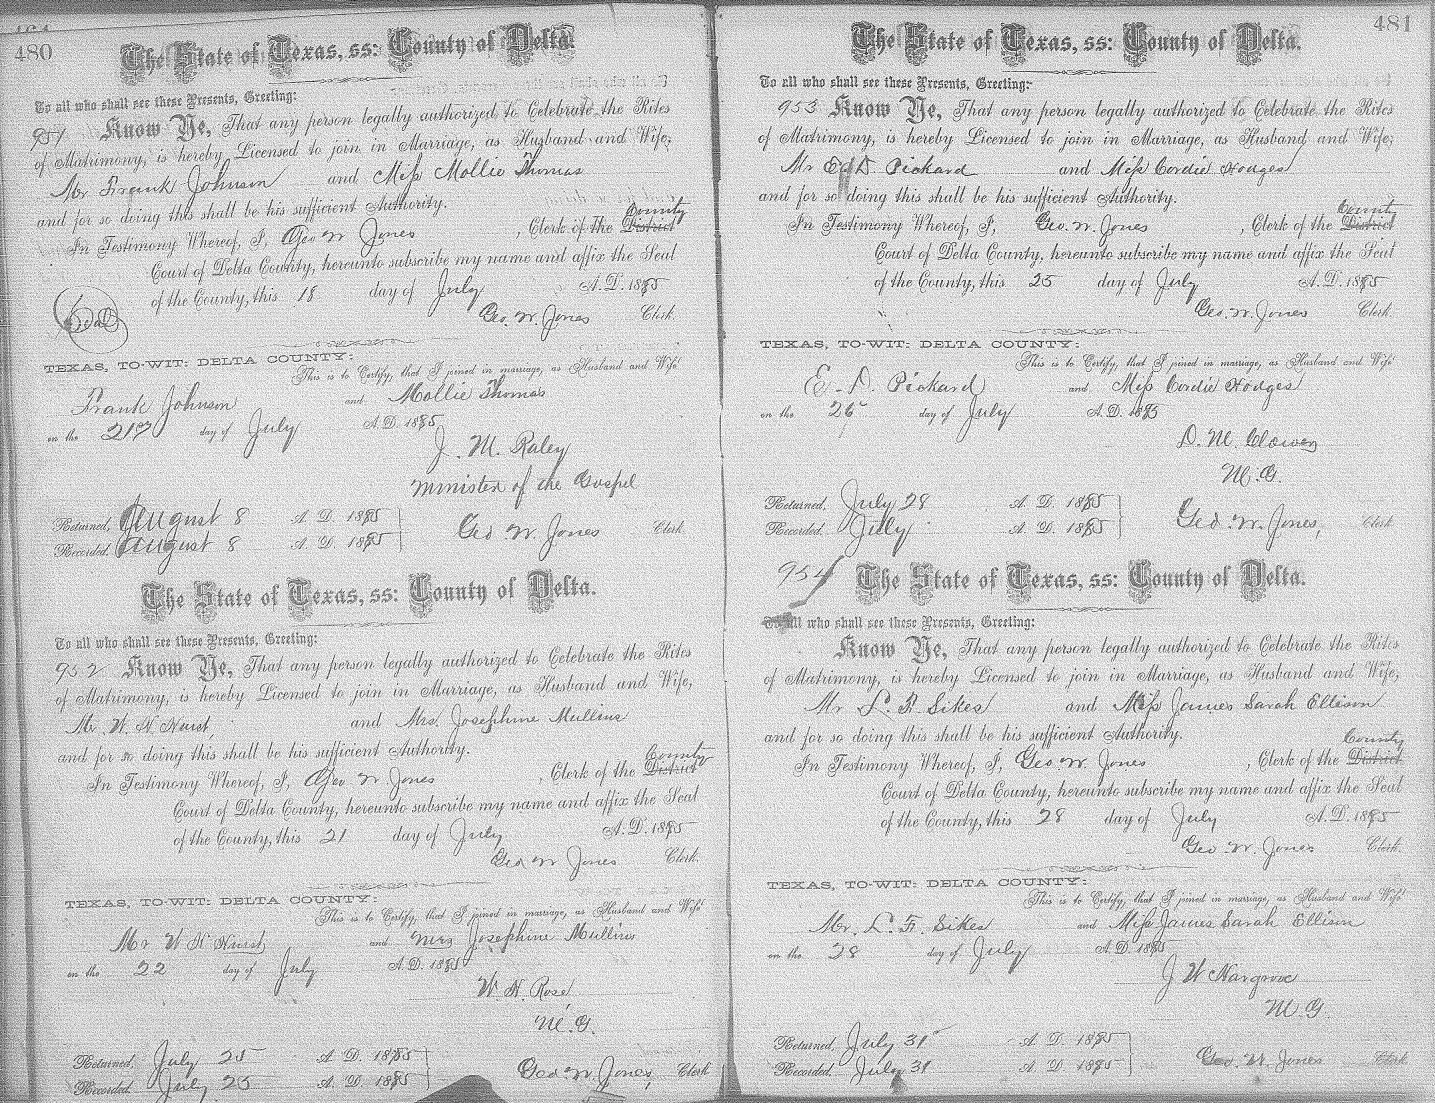 480
The State of Texas, ss: County of Delta.
To all who shall see these Presents, Greeting:
951 Know Ye, That any person legally authorized to Celebrate the Rites
of Matrimony, is hereby Licensed to join in Marriage, as Husband and Wife,
Mr Frank Johnson and Miss Mollie Thomas
and for so doing this shall be his sufficient Authority.
County
In Testimony Whereof, I, Geo W Jones, Clerk of the District
Court of Delta County, hereunto subscribe my name and affix the Seal
of the County, this 18 day of July A.D. 1885
Seal
Geo. W. Jones Clerk.
TEXAS, TO-WIT: DELTA COUNTY:
This is to Certify, that I joined in marriage, as Husband and Wife
Frank Johnson and Mollie Thomas
on the 21st day of July A.D. 1885
J. M. Raley
Minister of the Gospel
Returned, August 8 A.D. 1885
Recorded, August 8 A.D. 1885
Geo W Jones Clerk
The State of Texas, ss: County of Delta.
To all who shall see these Presents, Greeting:
952 Know Ye, That any person legally authorized to Celebrate the Rites
of Matrimony, is hereby Licensed to join in Marriage, as Husband and Wife,
Mr. W. H. Hurst and Mrs. Josephine Mullins
and for so doing this shall be his sufficient Authority.
County
In Testimony Whereof, I, Geo W Jones, Clerk of the District
Court of Delta County, hereunto subscribe my name and affix the Seal
of the County, this 21 day of July A.D. 1885
Geo W Jones Clerk.
TEXAS, TO-WIT: DELTA COUNTY:
This is to Certify, that I joined in marriage, as Husband and Wife
Mr W H Hurst and Mrs Josephine Mullins
on the 22 day of July A.D. 1885
W. H. Rose,
M.G.
Returned, July 25 A.D. 1885
Recorded, July 25 A.D. 1885
Geo W. Jones, Clerk
481
The State of Texas, ss: County of Delta.
To all who shall see these Presents, Greeting:
953 Know Ye, That any person legally authorized to Celebrate the Rites
of Matrimony, is hereby Licensed to join in Marriage, as Husband and Wife,
Mr E D Pickard and Miss Cordie Hodges
and for so doing this shall be his sufficient Authority.
County
In Testimony Whereof, I, Geo. W. Jones, Clerk of the District
Court of Delta County, hereunto subscribe my name and affix the Seal
of the County, this 25 day of July A.D. 1885
Geo. W. Jones Clerk.
TEXAS, TO-WIT: DELTA COUNTY:
This is to Certify, that I joined in marriage, as Husband and Wife
E. D. Pickard and Miss Cordie Hodges
on the 26 day of July A.D. 1885
D. M. Clower
M.G.
Returned, July 28 A.D. 1885
Recorded, July A.D. 1885
Geo. W. Jones, Clerk
954 The State of Texas, ss: County of Delta.
To all who shall see these Presents, Greeting:
Know Ye, That any person legally authorized to Celebrate the Rites
of Matrimony, is hereby Licensed to join in Marriage, as Husband and Wife,
Mr L. F. Sikes and Miss James Sarah Ellison
and for so doing this shall be his sufficient Authority.
County
In Testimony Whereof, I, Geo. W. Jones, Clerk of the District
Court of Delta County, hereunto subscribe my name and affix the Seal
of the County, this 28 day of July A.D. 1885
Geo. W. Jones Clerk.
TEXAS, TO-WIT: DELTA COUNTY:
This is to Certify, that I joined in marriage, as Husband and Wife
Mr. L. F. Sikes and Miss James Sarah Ellison
on the 28 day of July A.D. 1885
J W Hargrove
M G
Returned, July 31 A.D. 1885
Recorded, July 31 A.D. 1885
Geo. W. Jones Clerk